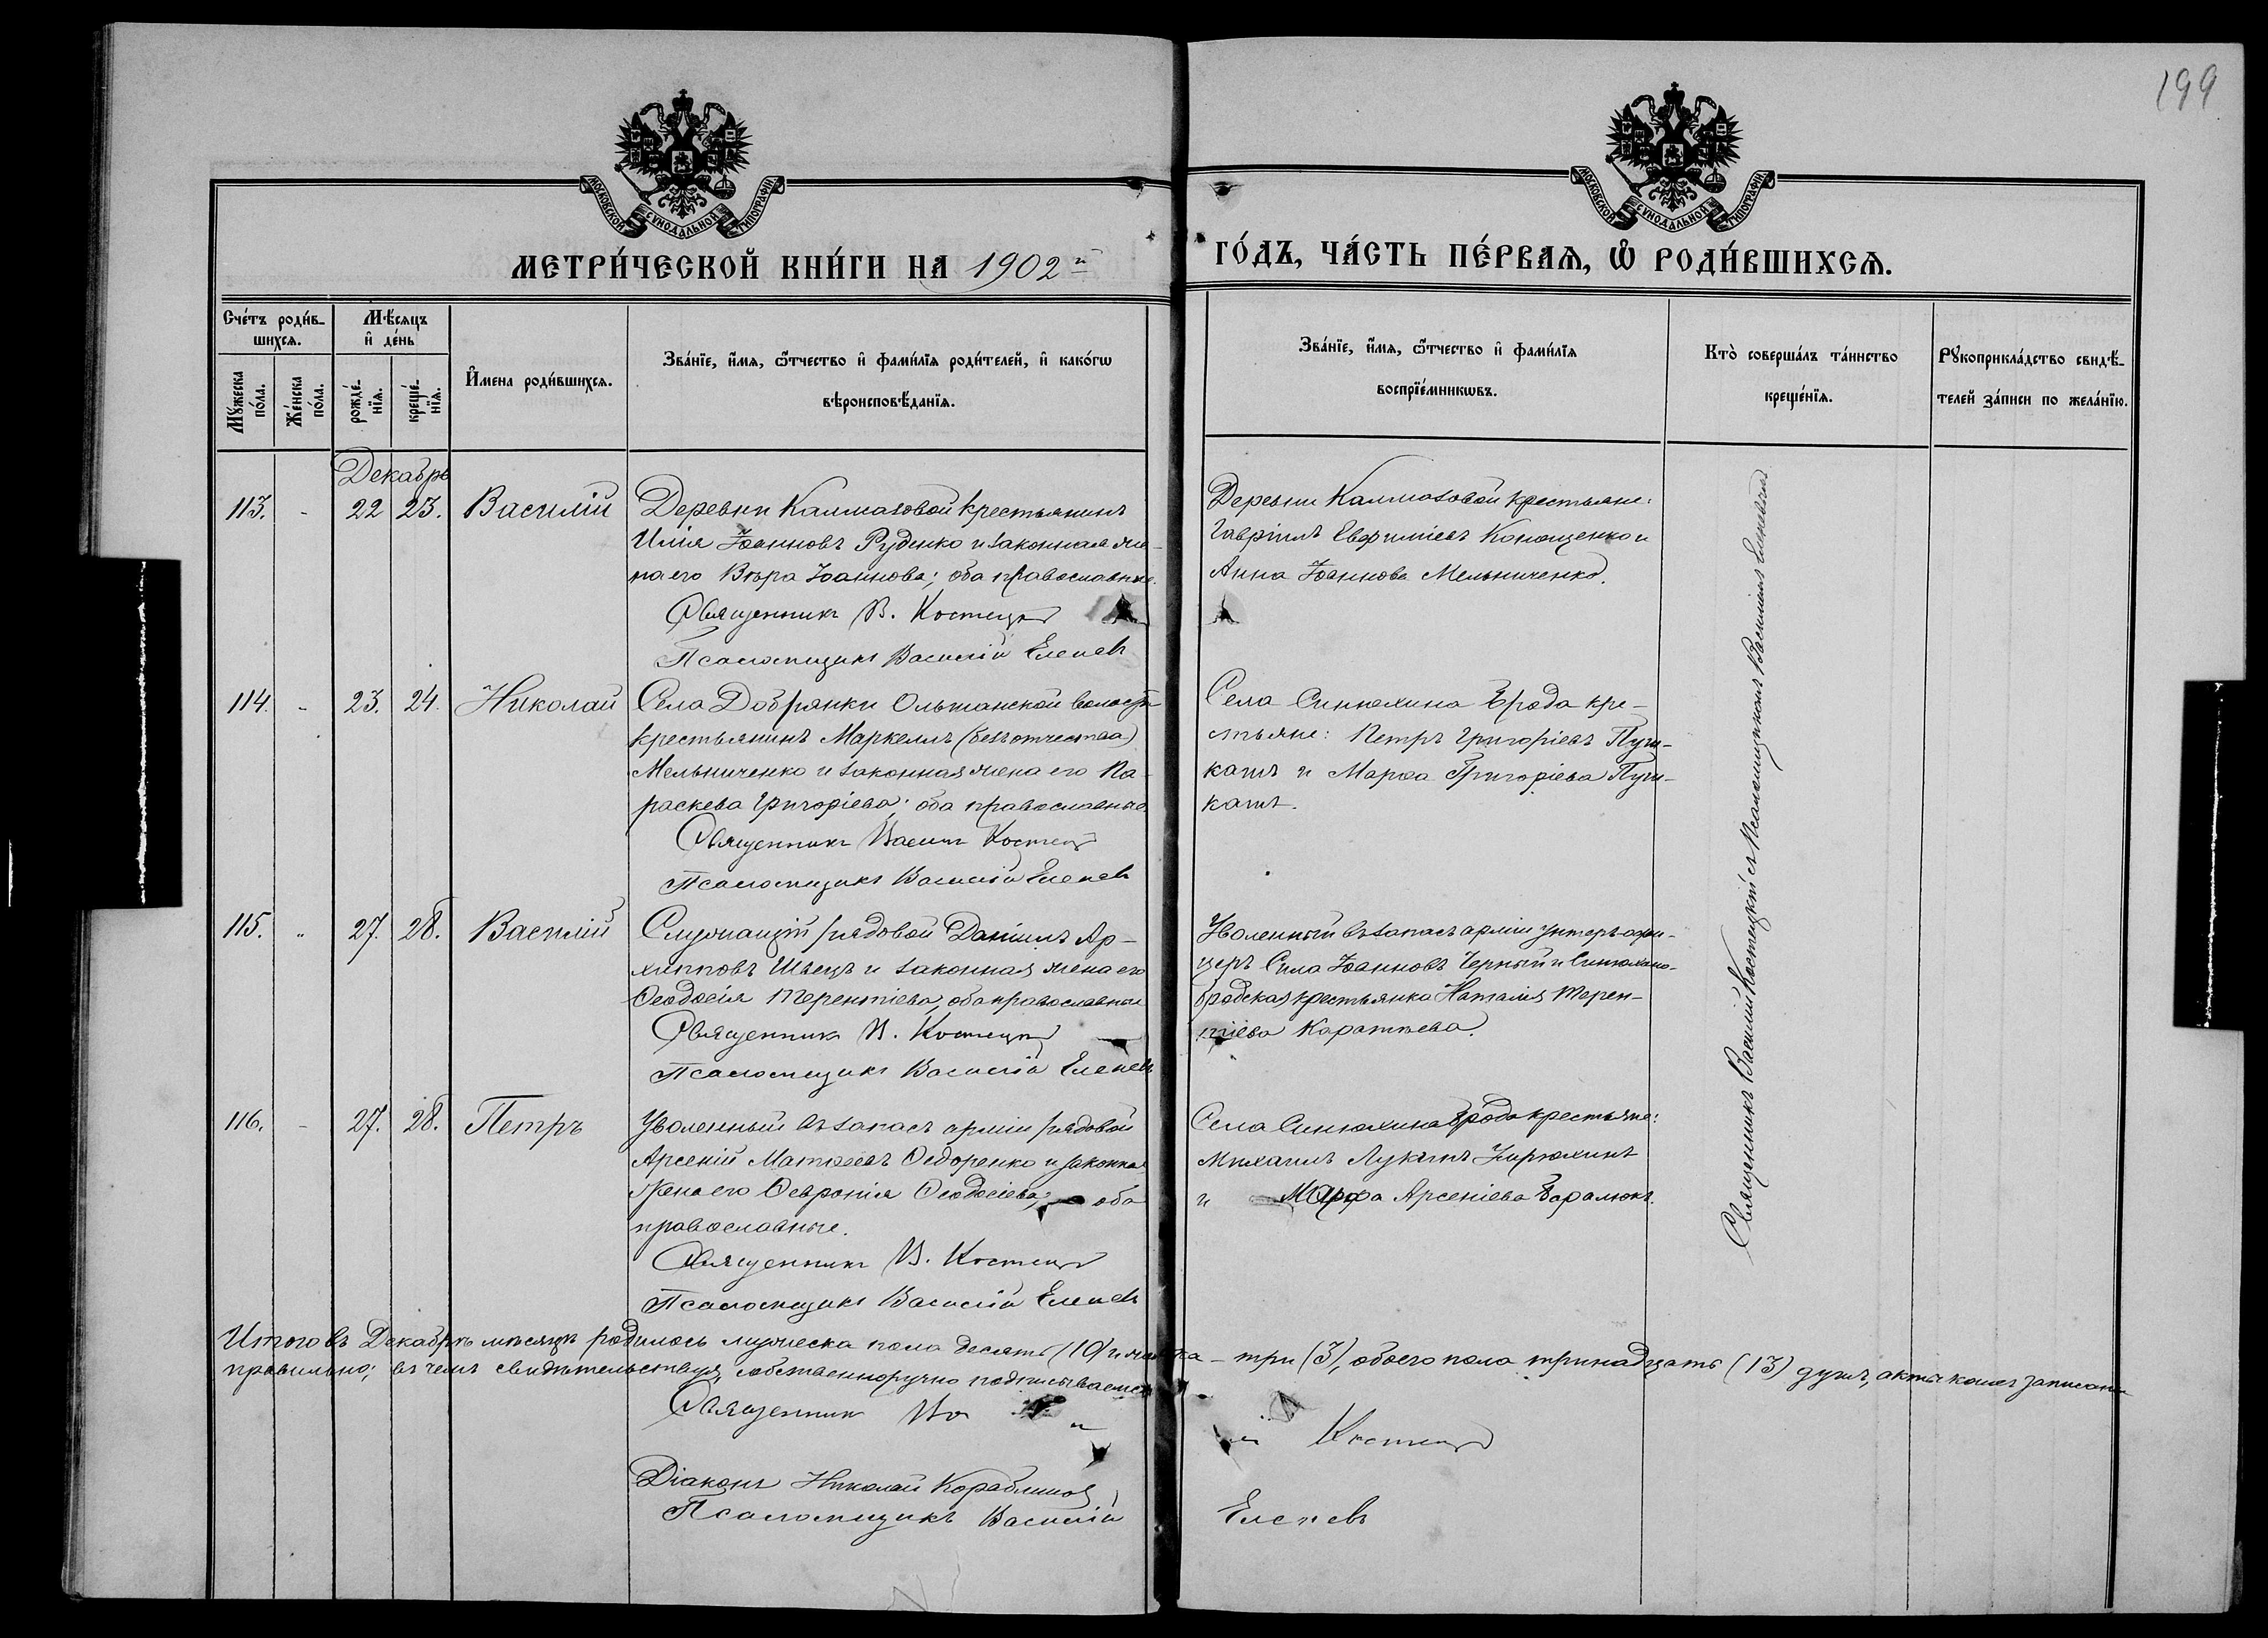 199
МОСКОВСКОЙ СѴНОДАЛЬНОЙ ТИПОГРАФІИ
МОСКОВСКОЙ СѴНОДАЛЬНОЙ ТИПОГРАФІИ
МЕТРИ́ЧЕСКОЙ КНИ́ГИ НА 1902й
ГО́ДЪ, ЧА́СТЬ ПЕ́РВАѦ, Ѡ РОДИ́ВШИХСѦ.
Сче́тъ роди́в-
шихсѧ.
Мѣ́сяцъ
и де́нь
Мꙋ́жеска
по́ла.
Же́нска
по́ла.
рожде́-
нїѧ.
креще́-
нїѧ.
И҆мена роди́вшихсѧ.
Зва́нїе, и҆́мѧ, ѻ҆́тчество и҆ фами́лїѧ роди́телей, и҆ како́гѡ
вѣроисповѣ́данїѧ.
Зва́нїе, и҆́мѧ, ѻ҆́тчество и҆ фами́лїѧ
воспрїе́мникѡвъ.
Кто̀ соверша́лъ та́инство
креще́нїѧ.
Рꙋкоприкла́дство свидѣ́-
телей за́писи по жела́нїю.
Декабрь
113. - 22 23. Василій
Деревни Калмазовой крестьянинъ
Илія Іоанновъ Руденко и законная же-
на его Вѣра Іоаннова; оба православные.
Священникъ В. Костецкій
Псаломщикъ Василій Еленевъ
Деревни Калмазовой крестьяне:
Гавріилъ Евфиміевъ Кононценко и
Анна Іоаннова Мельниченко.
114. - 23. 24. Николай
Села Добрянки Ольшанской волости
крестьянинъ Маркеллъ (безъ отчества)
Мельниченко и законная жена его Па-
раскева Григоріева; оба православные.
Священникъ Василій Костецкій
Псаломщикъ Василій Еленевъ
Села Синюхина Брода кре-
стьяне: Петръ Григоріевъ Пуш-
кашъ и Марѳа Григоріева Пуш-
кашъ.
115. „ 27. 28. Василій
Служащій рядовой Даніилъ Ар-
хипповъ Швецъ и законная жена его
Ѳеодосія Терентіева, оба православные
Священникъ В. Костецкій
Псаломщикъ Василій Еленевъ
Уволенный въ запасъ арміи унтеръ-офи-
церъ Сила Іоанновъ Черный и Синюхино-
бродская крестьянка Наталія Терен-
тіева Каратѣева.
116. - 27. 28. Петръ
Уволенный въ запасъ арміи рядовой
Арсеній Матѳеевъ Ѳедоренко и законная
жена его Ѳевронія Ѳеодосіева; оба
православные.
Священникъ В. Костецкій
Псаломщикъ Василій Еленевъ
Села Синюхина Брода крестьяне:
Михаилъ Лукинъ Кирюхинъ
и Марѳа Арсеніева Баралюкъ.
Священникъ Василій Костецкій съ Псаломщикомъ Василіемъ Еленевымъ
Итого въ Декабрѣ мѣсяцѣ родилось мужеска пола десять (10) и женска - три (3), обоего пола тринадцать (13) душъ, акты коихъ записаны
правильно; въ чемъ свидѣтельствуя, собственноручно подписываемся
Священникъ Ва й Костецкій
Діаконъ Николай Кораблиновъ
Псаломщикъ Василій Еленевъ